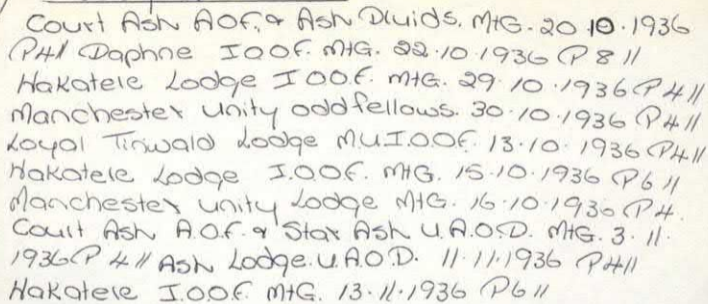 Court Ash A.O.F. & Ash Druids. MtG. 20.10.1936
P4 // Daphne I.O.O.F. MtG. 22.10.1936 P 8 //
Hakatere Lodge I.O.O.F. MtG. 29.10.1936 P4 //
Manchester Unity oddfellows. 30.10.1936 P4 //
Loyal Tinwald Lodge M.U.I.O.O.F. 13.10.1936 P4 //
Hakatere Lodge I.O.O.F. MtG. 15.10.1936 P6 //
Manchester Unity Lodge MtG. 16.10.1936 P4.
Court Ash A.O.F. & Star Ash U.A.O.D. MtG. 3.11.
1936 P 4 // Ash Lodge. U.A.O.D. 11.11.1936 P4 //
Hakatere I.O.O.F. MtG. 13.11.1936 P6 //